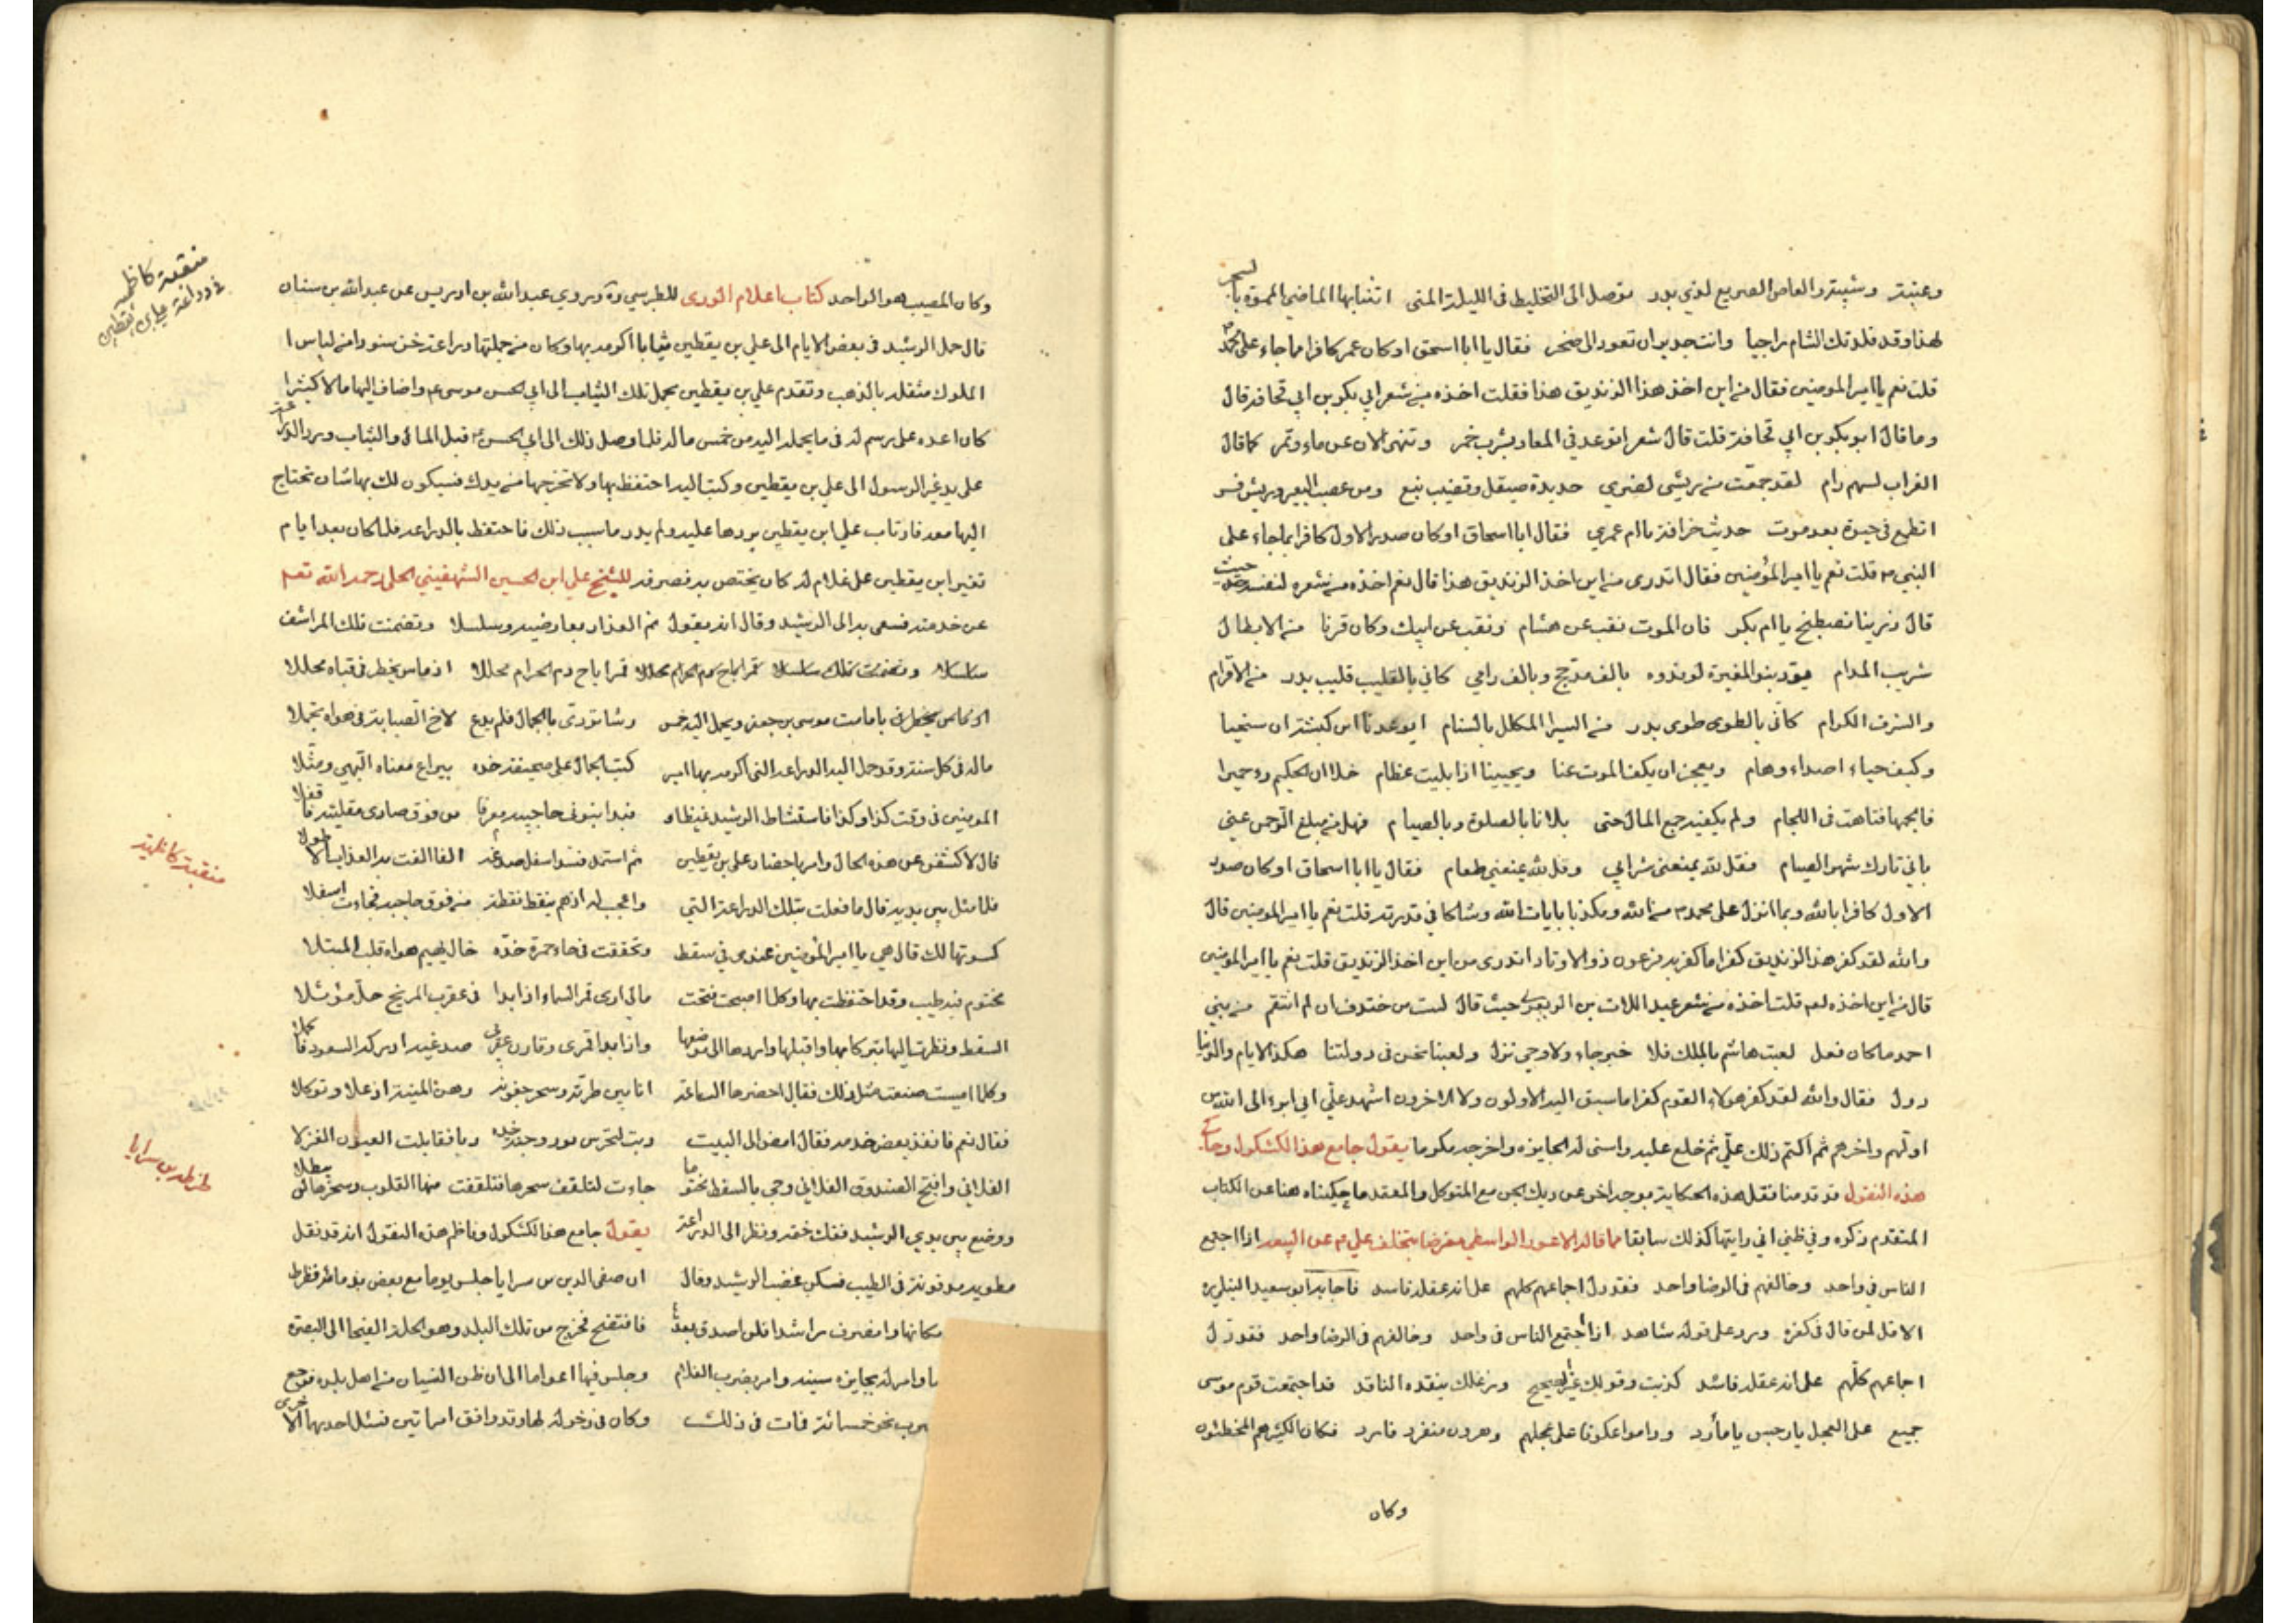 وعتبة وشيبة والعاص الصريع لذي بدر توصل الى التخليط في الليلة المنى اتثنابها الماضي المموه بالسحر
لهذا وقد قلدتك الشام راجيا وانت جدير ان تعود الى صخر فقال يا ابا اسحق اوكان عمر كافرا بما جاء على محمد
قلت نعم يا امير المومنين فقال من اين اخذ هذا الزنديق هذا فقلت اخذه من شعر ابي بكر بن ابي قحافة قال
وما قال ابو بكر بن ابي قحافة قلت قال شعرا اتوعد في المعاد بشرب خمر وتنهى الان عن ماء وتمر كما قال
الغراب لسهم رام لقد جمعت من ريشي لضري حديدة صيقل وقضيب نبع ومن عصب البعير وريش نسر
اتطمع في حيوة بعد موت حديث خرافة يا ام عمري فقال ابا اسحاق اوكان صدر الاول كافرا بما جاء على
النبي م قلت نعم يا امير المؤمنين فقال اتدرى من اين اخذ الزنديق هذا قال نعم اخذه من شعره لنفسه حيث
قال ذرينا نصطبح يا ام بكر فان الموت نقب عن هشام ونقب عن ابيك وكان قرنا من الابطال
شريب المدام يود بنو المغيرة لو فدوه بالف مدجج وبالف رامي كاني بالقليب قليب بدر من الاقرام
والشرف الكرام كأني بالطوى طوى بدر من الشيزا المكلل بالسنام ايوعدنا ابن كبشة ان سنحيا
وكيف حياء اصداء وهام ويعجز ان يكف الموت عنا ويحيينا اذا بليت عظام خلا ان الحكيم رء حميرا
فالجمها فتاهت في اللجام ولم يكفيه جمع المال حتى بلانا بالصلوة وبالصيام فهل من مبلغ الرحمن عني
باني تارك شهر الصيام فقل لله يمنعني شرابي وقل لله يمنعني طعام فقال يا ابا اسحاق اوكان صدر
الاول كافرا بالله وبما انزل على محمد م من الله ومكذبا بايات الله وشاكا في قدرته قلت نعم يا امير المومنين قال
والله لقد كفر هذا الزنديق كفرا ما كفر به فرعون ذو الاوتاد اتدرى من اين اخذ الزنديق قلت نعم يا امير المومنين
قال من اين اخذه لعم قلت اخذه من شعر عبد اللات بن الزبعرى حيث قال لست من خندف ان لم انتقم من بني
احمد ما كان فعل لعبت هاشم بالملك فلا خبر جاء ولا وحي نزل ولعبنا نحن في دولتنا هكذا الايام والدنيا
دول فقال والله لقد كفر هؤلاء القوم كفرا ما سبق اليه الاولون ولا الاخرون اشهد علي اني ابرء الى الله من
اولهم واخرهم ثم اكتم ذلك علي ثم خلع عليه واسنى له الجايزه واخرجه مكرما يقول جامع هذا الكشكول وحاكي
هذه النقول قد قدمنا نقل هذه الحكاية بوجه اخر عن ديك الجن مع المتوكل والمعقد ما حكيناه هنا عن الكتاب
المتقدم ذكره وفي ظني اني رايتها كذلك سابقا مما قاله الاعور الواسطي معرضا بتخلف علي م عن البيعة اذا اجتمع
الناس في واحد وخالفهم في الرضا واحد فقد دل اجماعهم كلهم على انه عقله فاسد فاجابه ابو سعيد النيلي ره
الا قل لمن قال في كفره ورد على قوله شاهد اذا اجتمع الناس في واحد وخالفهم في الرضا واحد فقد دل
اجماعهم كلهم على انه عقله فاسد كذبت وقولك غير الصحيح وزغلك ينقده الناقد قد اجتمعت قوم موسى
جميع على العجل يا رجس يا مارد وداموا عكوفا على عجلهم وهرون منفرد فارد فكان الكثير هم المخطئون
وكان
وكان المصيب هو الواحد كتاب اعلام الورى للطبرسي ره وروي عبد الله بن ادريس عن عبد الله بن سنان
قال حمل الرشيد في بعض الايام الى علي بن يقطين ثيابا اكرمه بها وكان من جملتها دراعة خز سوداء من لباس ا
الملوك مثقلة بالذهب وتقدم علي بن يقطين بحمل تلك الثياب الى ابي الحسن موسى ع واضاف اليها مالا كثيرا
كان اعده على رسم له في ما يحمله اليه من خمس ماله فلما وصل ذلك الى ابي الحسن م قبل المال والثياب ورد الدراعة
على يد غير الرسول الى علي بن يقطين وكتب اليه احتفظ بها ولا تخرجها من يدك فسيكون لك بها شان تحتاج
اليها معه فارتاب علي ابن يقطين بردها عليه ولم يدر ما سبب ذلك فاحتفظ بالدراعة فلما كان بعد ايام
تغير ابن يقطين على غلام له كان يختص به فصرفه للشيخ علي ابن الحسين الشهفيني الحلي رحمه الله تعم
عن خدمته فسعى به الى الرشيد وقال انه يقول نم العذار بعارضيه وسلسلا وتضمنت تلك المراشف
سلسلا وتضمنت تلك سلسلا قمر اباح دم الحرام محللا قمرا باح دم الحرام محللا اذ ماس يخطر في قباه محللا
اذ ماس يخطر في بامامت موسى بن جعفر ويحمل اليه خمس وشا تردى بالجمال فلم يدع لاخ الصبابة في هواه تجملا
ماله في كل سنة وقد حمل اليه الدراعة التي اكرمه بها امير كتب الجمال على صحيفة خده بيراع معناه البهي ومثلا
المومنين في وقت كذا وكذا فاستشاط الرشيد غيظا و فبدا بنوني حاجبيه معرقا من فوق صادى مقلتيه فاقفلا
قال لاكشفن عن هذه الحال وامر باحضار علي بن يقطين ثم استمد فمد اسفل صدغه الفا الفت به العذاب الاطولا
فلما مثل بين يديه قال ما فعلت بتلك الدراعة التي واعجب له اذ هم ينقط نقطة من فوق حاجبه فجاءت اسفلا
كسوتها لك قال هي يا امير المؤمنين عندى في سفط وتحققت في حاء حمرة خده خال يعم هواه قلب المبتلا
مختوم فيه طيب وقد احتفظت بها وكلما اصبحت فتحت مالي ارى قمر السماء اذا بدا في عقرب المريخ حل مؤثلا
السفط ونظرت اليها تبركا بها واقبلها واردها الى موضعها واذا بدا قمرى وقارن عقربي صدغيه ادركه السعود فاكملا
وكلما امسيت صنعت مثل ذلك فقال احضرها الساعة انا بين طرته وسحر جفونه وهن المنية اذ علا وتوكلا
فقال نعم فانفذ بعض خدمه فقال امض الى البيت دبت لتحرس نور وجنة خده ربا فقابلت العيون الغزلا
الفلاني وافتح الصندوق الفلاني وجئ بالسفط مختوما جاءت لتلقف سحرها فتلقفت منها القلوب وسحرها لن يبطلا
ووضع بين يدي الرشيد ففك ختمه ونظر الى الدراعة يقول جامع هذا الكشكول وناظم هذه النقول انه قد نقل
مطوية مدفونة في الطيب فسكن غضب الرشيد وقال ان صفي الدين بن سرايا جلس يوما مع بعض بذماطر فظرط
مكانها وانصرف راشدا فلن اصدق بعدها فافتضح فخرج من تلك البلد وهو الحلة الفيحا الى البصرة
وامر له بجايزه سنيه وامر بضرب الغلام وجلس فيها اعواما الى ان ظن النسيان من اهل بلده فرجع
نحو خمسمائة فمات في ذلك وكان في دخوله لها وقد وافق امراتين فسئل احدهما الاخرى
منقبة كاظمية
في دراعة علي بن يقطين
منقبة كاظمية
ظرطة بن سرايا